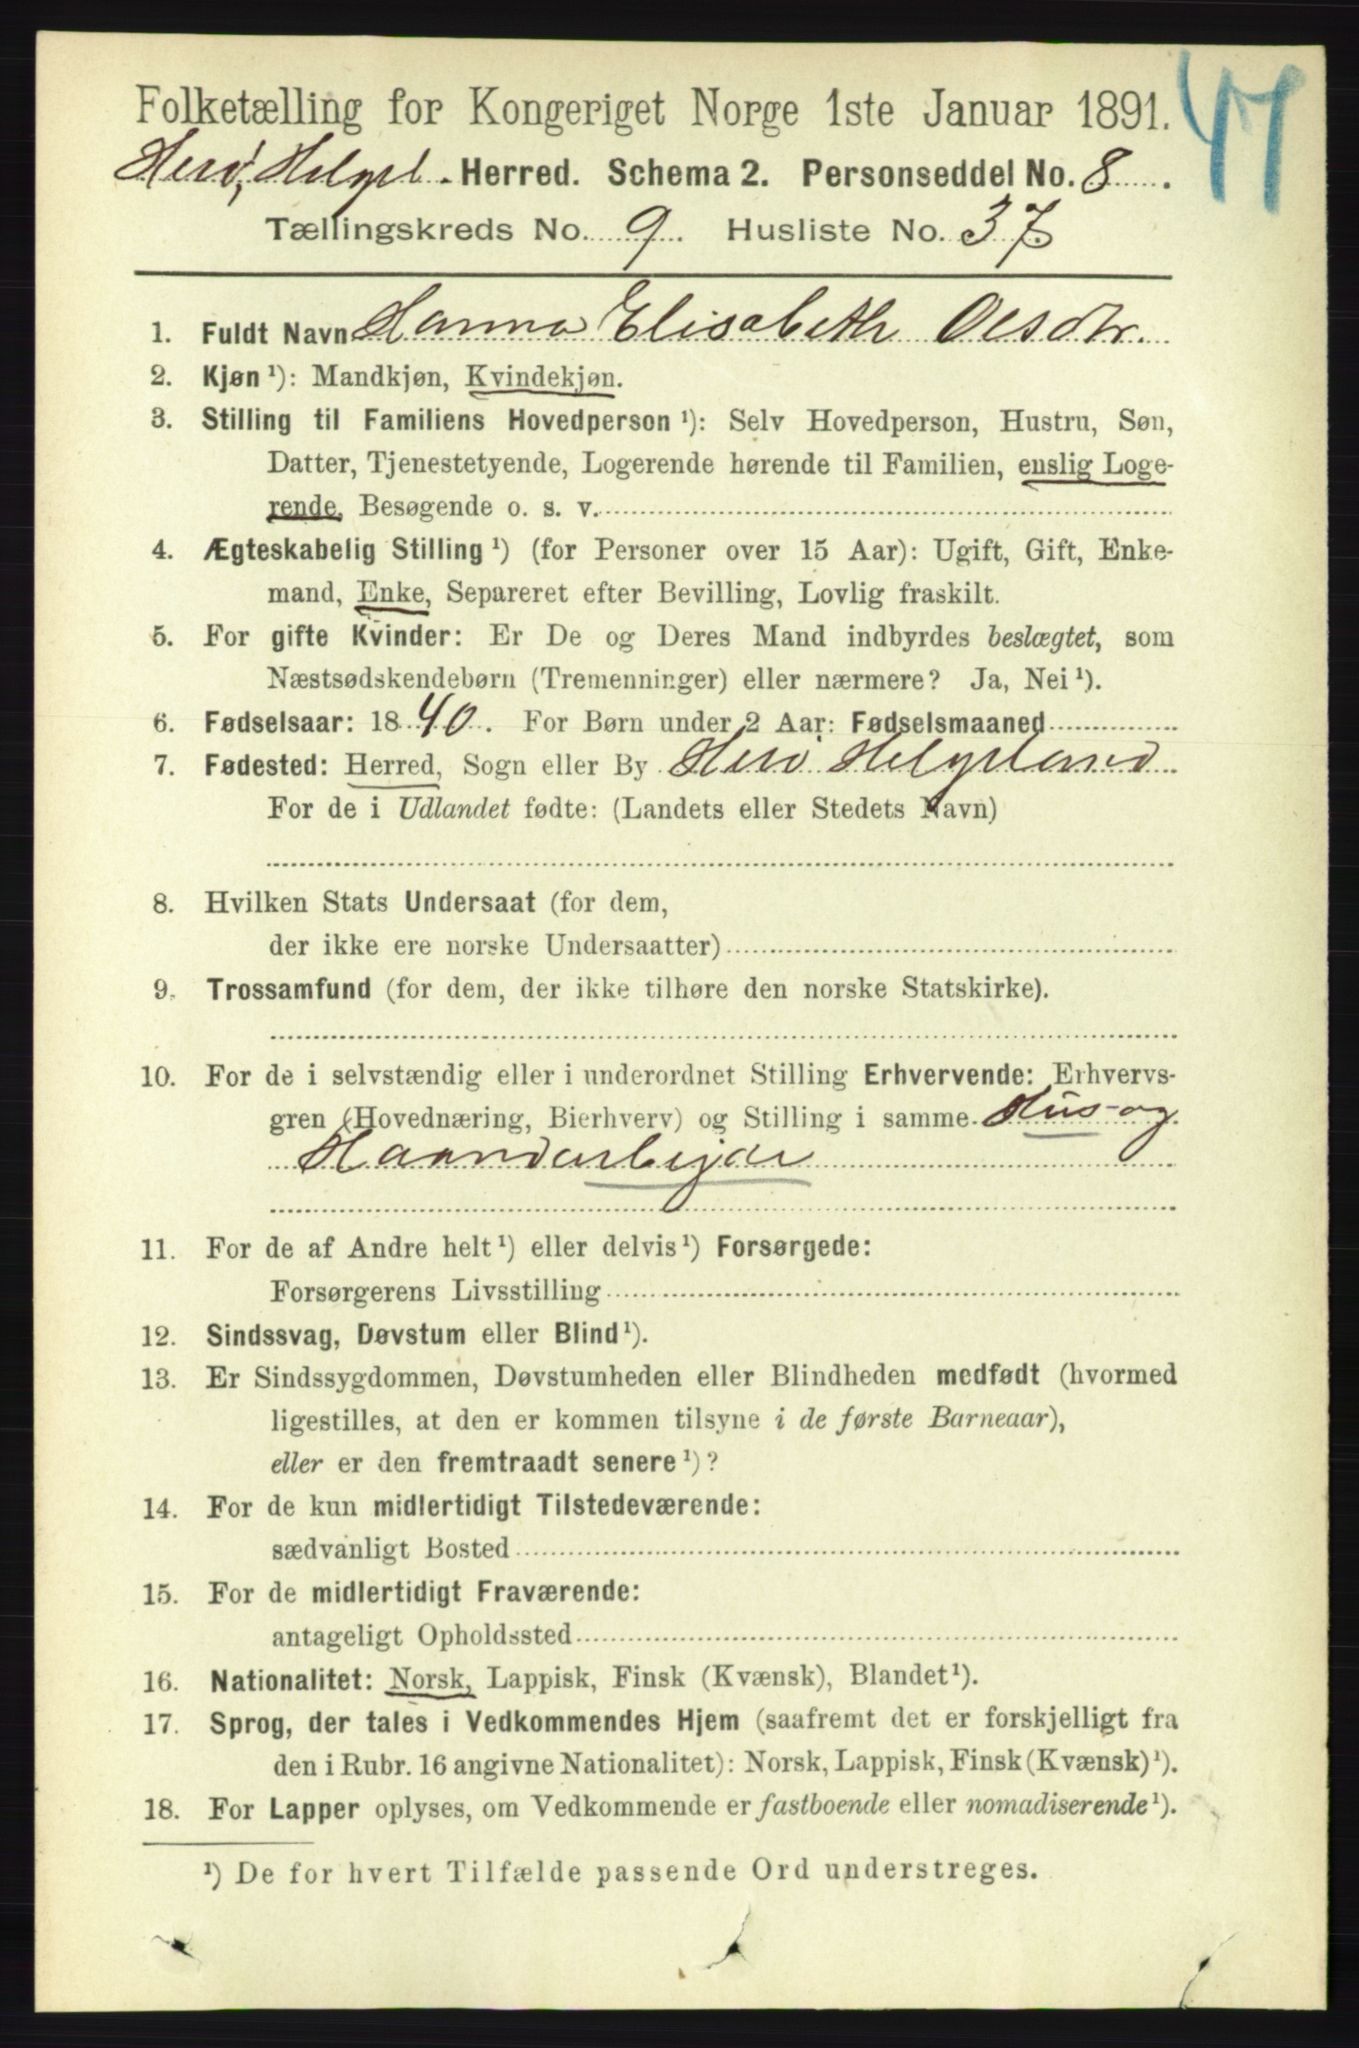 Folketælling for Kongeriget Norge 1ste Januar 1891.
Herø, Helgel. Herred. Schema 2. Personseddel No. 8.
Tællingskreds No. 9. Husliste No. 37
1. Fuldt Navn Hanna Elisabeth Olsdtr.
2. Kjøn ¹): Mandkjøn, Kvindekjøn.
3. Stilling til Familiens Hovedperson ¹): Selv Hovedperson, Hustru, Søn,
Datter, Tjenestetyende, Logerende hørende til Familien, enslig Loge-
rende, Besøgende o. s. v.
4. Ægteskabelig Stilling ¹) (for Personer over 15 Aar): Ugift, Gift, Enke-
mand, Enke, Separeret efter Bevilling, Lovlig fraskilt.
5. For gifte Kvinder: Er De og Deres Mand indbyrdes beslægtet, som
Næstsødskendebørn (Tremenninger) eller nærmere? Ja, Nei ¹).
6. Fødselsaar: 1840. For Børn under 2 Aar: Fødselsmaaned
7. Fødested: Herred, Sogn eller By Herø Helgeland
For de i Udlandet fødte: (Landets eller Stedets Navn)
8. Hvilken Stats Undersaat (for dem,
der ikke ere norske Undersaatter)
9. Trossamfund (for dem, der ikke tilhøre den norske Statskirke).
10. For de i selvstændig eller i underordnet Stilling Erhvervende: Erhvervs-
gren (Hovednæring, Bierhverv) og Stilling i samme. Hus- og
Haandarbejde
11. For de af Andre helt ¹) eller delvis ¹) Forsørgede:
Forsørgerens Livsstilling
12. Sindssvag, Døvstum eller Blind ¹).
13. Er Sindssygdommen, Døvstumheden eller Blindheden medfødt (hvormed
ligestilles, at den er kommen tilsyne i de første Barneaar),
eller er den fremtraadt senere ¹)?
14. For de kun midlertidigt Tilstedeværende:
sædvanligt Bosted
15. For de midlertidigt Fraværende:
antageligt Opholdssted
16. Nationalitet: Norsk, Lappisk, Finsk (Kvænsk), Blandet ¹).
17. Sprog, der tales i Vedkommendes Hjem (saafremt det er forskjelligt fra
den i Rubr. 16 angivne Nationalitet): Norsk, Lappisk, Finsk (Kvænsk) ¹).
18. For Lapper oplyses, om Vedkommende er fastboende eller nomadiserende ¹).
¹) De for hvert Tilfælde passende Ord understreges.